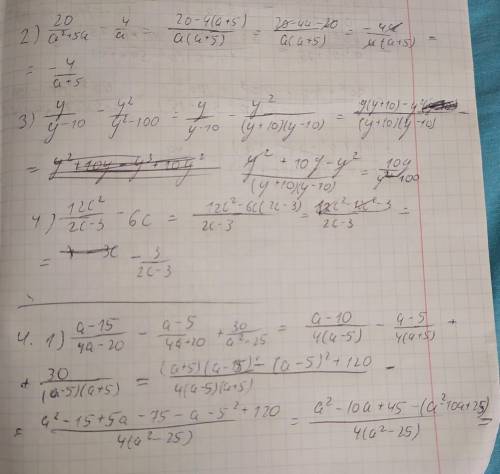 2) 20/(a²+5a) - 4/a = (20-4(a+5))/(a(a+5)) = (20-4a-20)/(a(a+5)) = -4a/(a(a+5)) =
= -4/(a+5)
3) y/(y-10) - y²/(y²-100) = y/(y-10) - y²/((y+10)(y-10)) = (y(y+10)-y²)/((y+10)(y-10)) -
= (y²+10y-y²)/((y+10)(y-10)) = 10y/(y²-100)
4) 12c²/(2c-3) - 6c = (12c²-6c(2c-3))/(2c-3) = (12c²-12c²-3)/(2c-3) =
= -3/(2c-3)
4. 1) (a-15)/(4a-20) - (a-5)/(4a+20) + 30/(a²-25) = (a-10)/(4(a-5)) - (a-5)/(4(a+5)) +
+ 30/((a-5)(a+5)) = ((a+5)(a-15)-(a-5)²+120)/(4(a-5)(a+5)) -
= (a²-15+5a-75-a-5²+120)/(4(a²-25)) = (a²-10a+45-(a²10a+25))/(4(a²-25)) =